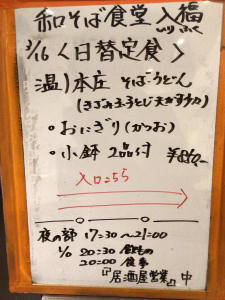 和そば食堂 入福
3/16 〈日替定食〉
温)本庄 そばorうどん
(きざみふろとじ天かす入り)
・おにぎり(かつお)
・小鉢 2品付
入口→→
夜の部 17:30〜21:00
L/O 20:30 飲もの
20:00 食事
『居酒屋営業』中